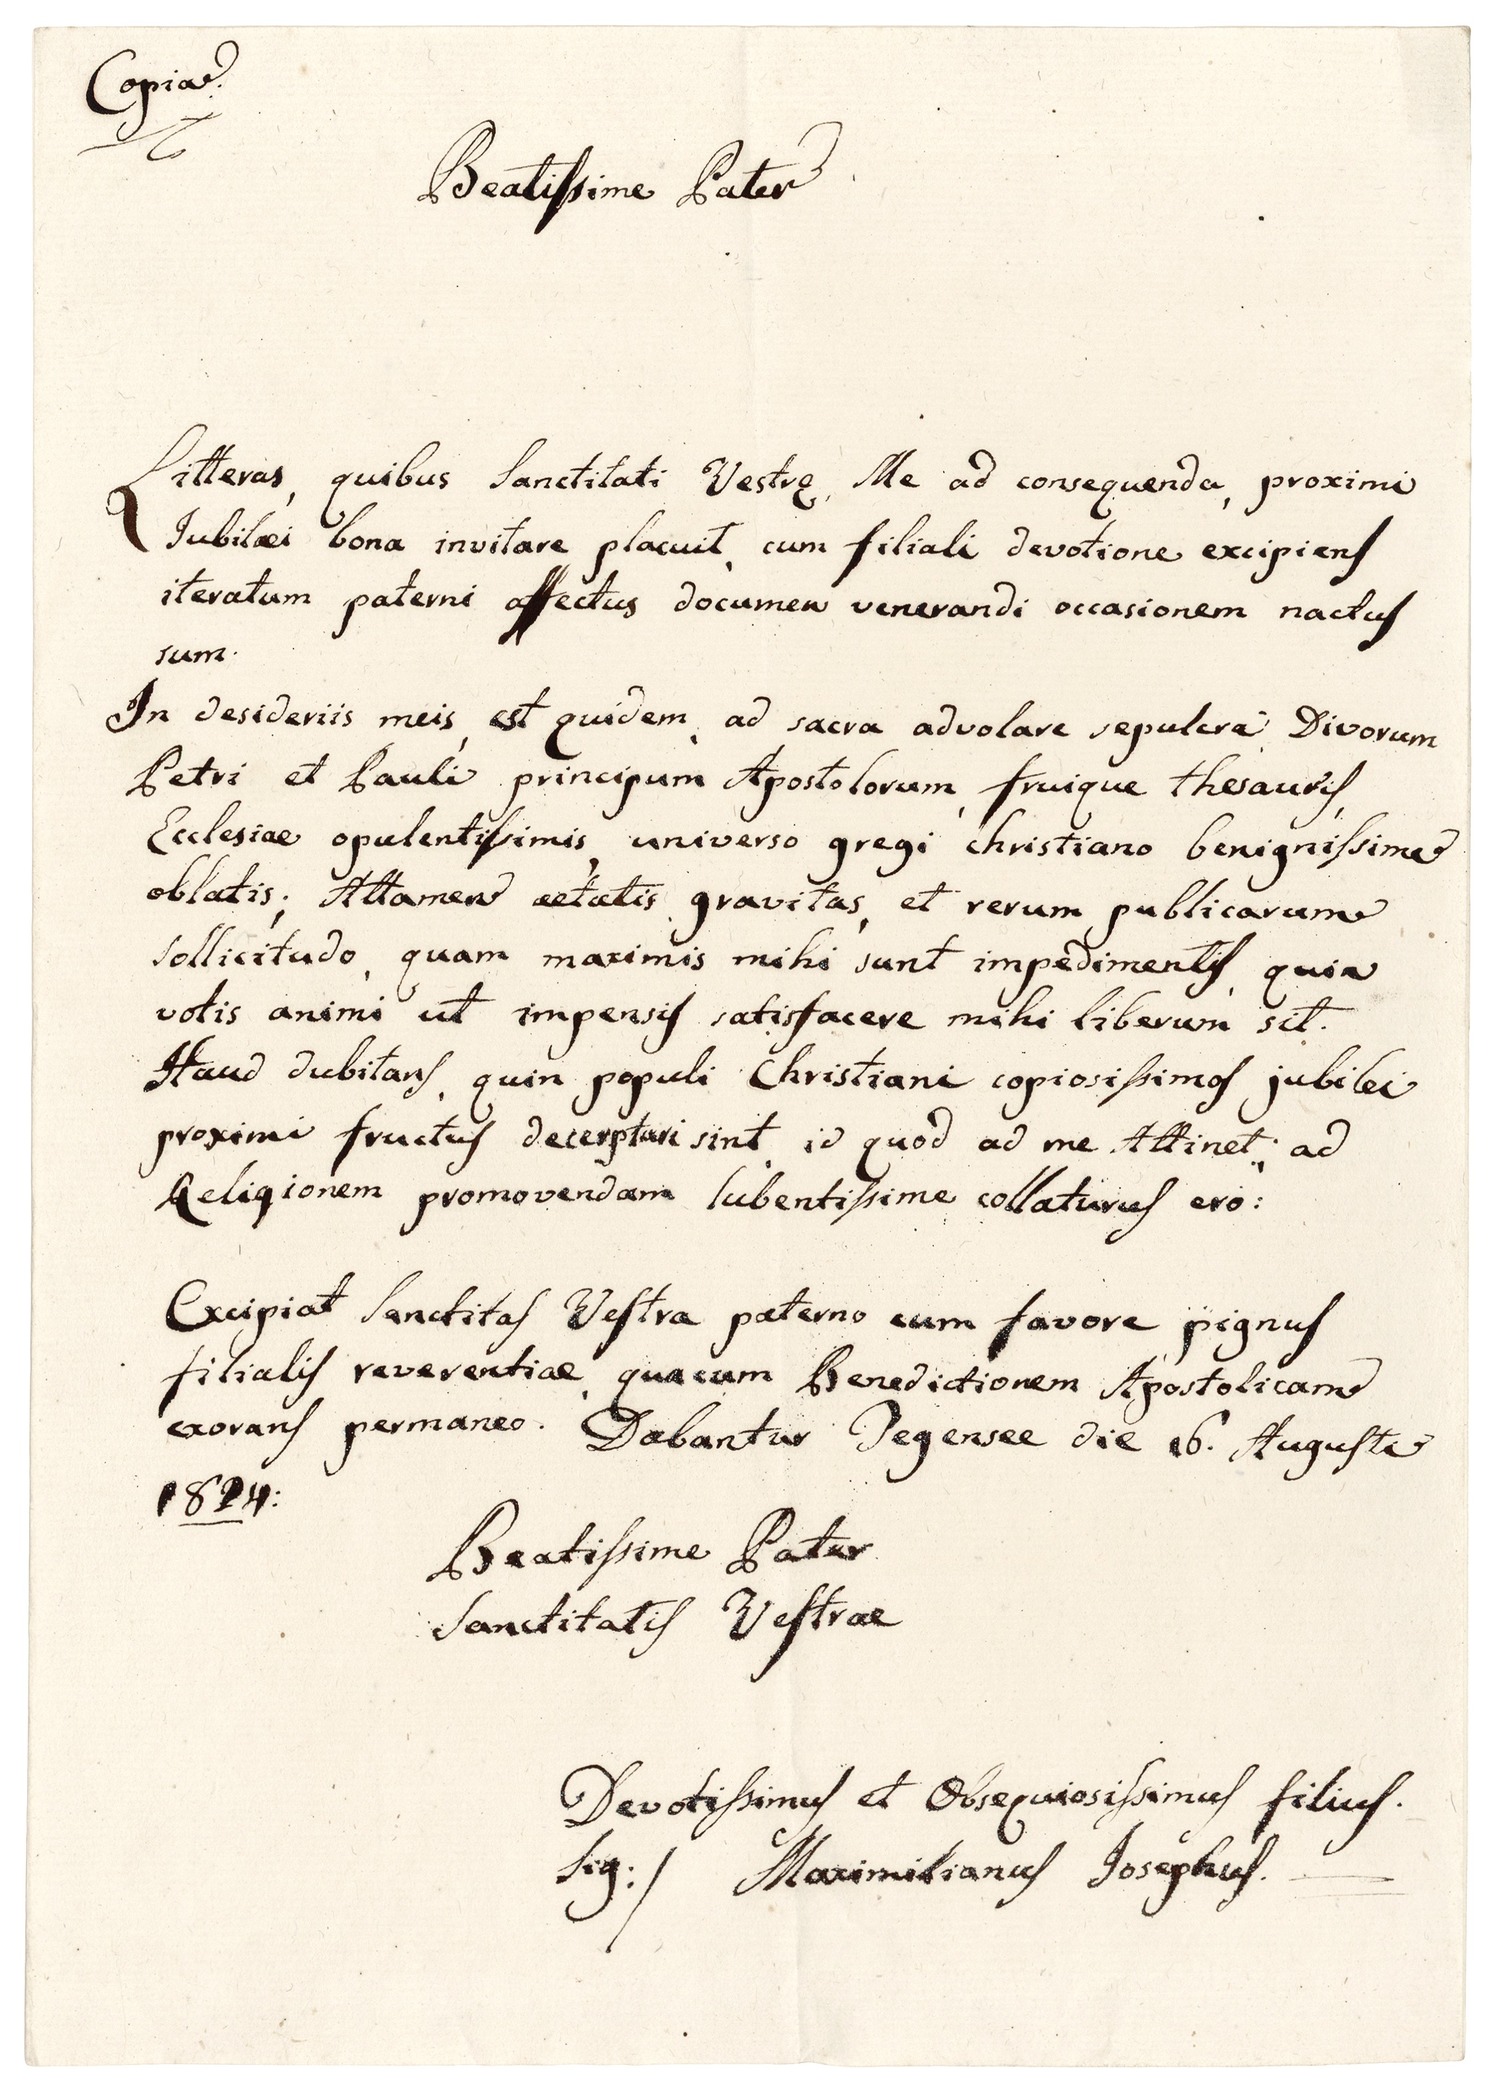 Copia.
Beatissime Pater
Litteras, quibus Sanctitati Vestrę, Me ad consequenda, proximi
Jubilæi bona invitare placuit, cum filiali devotione excipiens
iteratum paterni affectus documen venerandi occasionem nactus
sum.
In desideriis meis, est quidem, ad sacra advolare sepulcra Divorum
Petri et Pauli principum Apostolorum, fruique thesauris,
Ecclesiae opulentissimis, universo gregi christiano benignissime
oblatis; Attamen aetatis gravitas, et rerum publicarum
sollicitudo, quam maximis mihi sunt impedimentis, quin
votis animi ut impensis satisfacere mihi liberum sit.
Haud dubitans, quin populi Christiani copiosissimos jubilei
proximi fructus decerpturi sint, id quod ad me Attinet; ad
Religionem promovendam lubentissime collaturus ero:
Excipiat Sanctitas Vestra paterno cum favore pignus
filialis reverentiae, quacum Benedictionem Apostolicam
exorans permaneo. Dabantur Tegensee die 16. Augusti
1824:
Beatissime Pater
Sanctitatis Vestrae
Devotissimus et Obsequiosissimus filius.
Sig:/ Maximilianus Josephus.